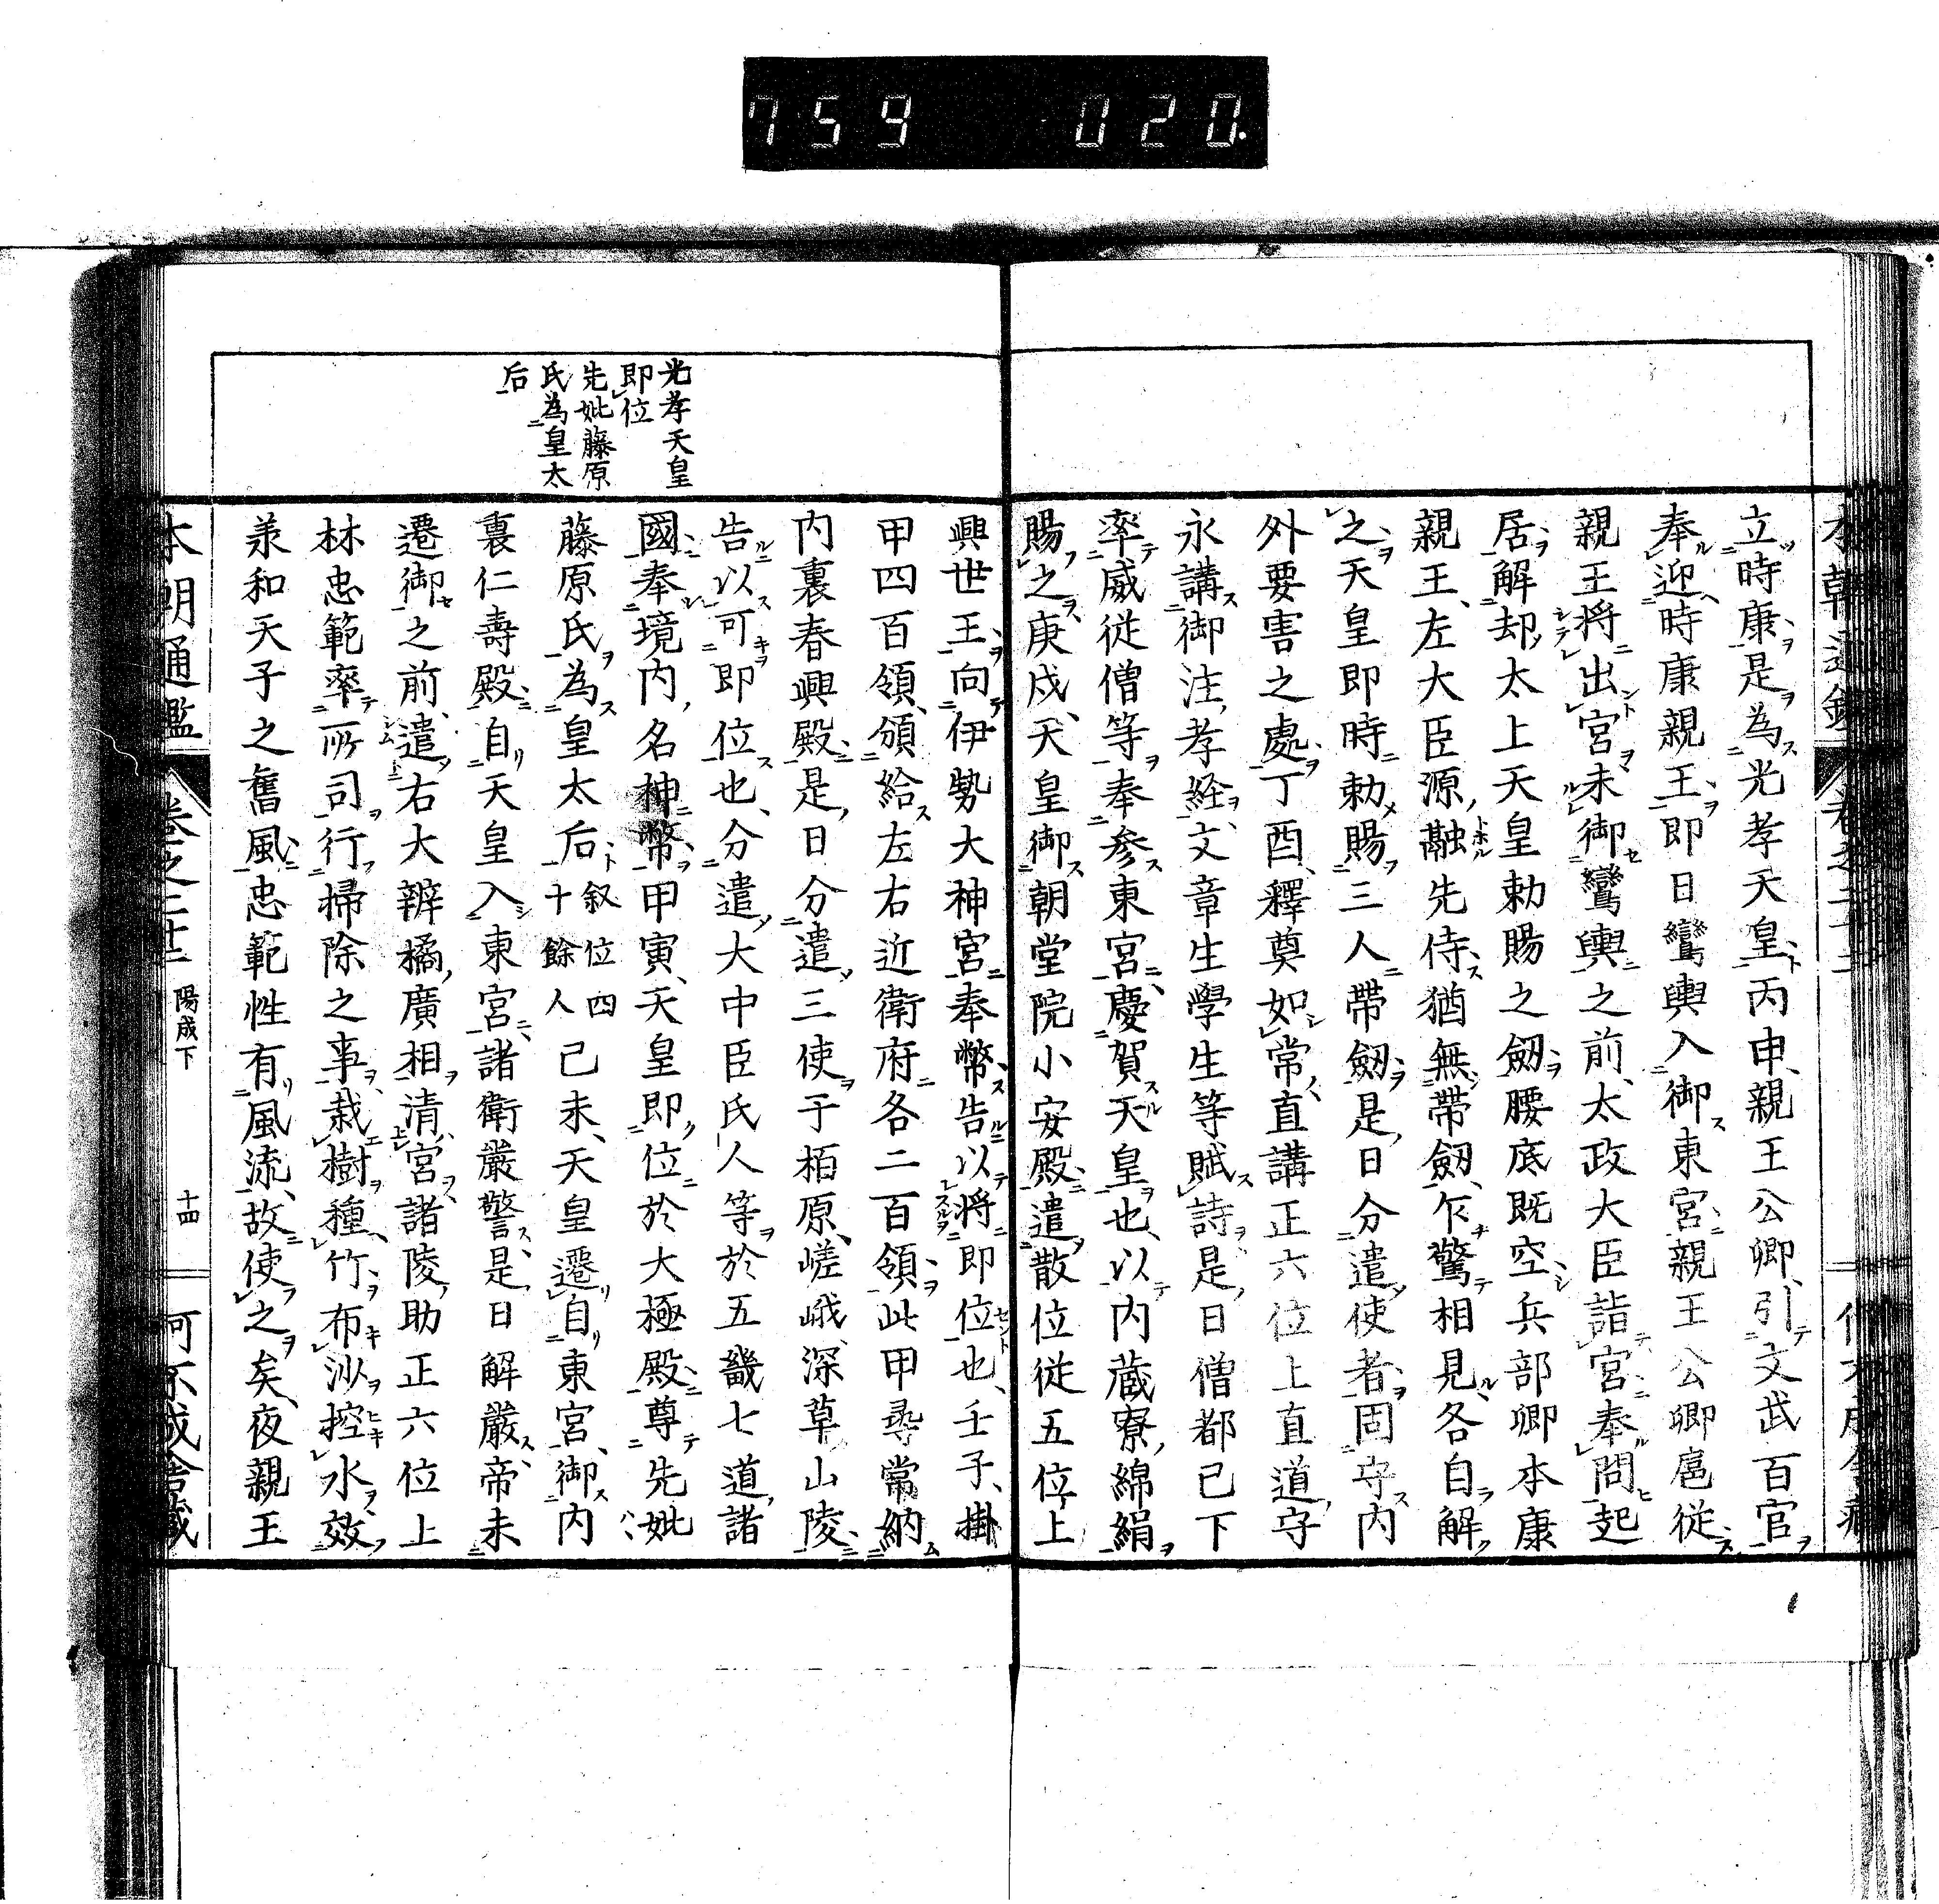 759 020.
立時康是為光孝天皇丙申親王公卿引文武百官
奉迎時康親王即日鸞輿入御東宮親王公卿扈從
親王將出宮未御鸞輿之前太政大臣詣宮奉問起
居解却太上天皇勅賜之劔腰底既空兵部卿本康
親王左大臣源融先侍猶無帶劔乍驚相見各自解
之天皇即時勅賜三人帶劔是日分遣使者固守內
外要害之處丁酉釋奠如常直講正六位上直道守
永講御注孝経文章生學生等賦詩是日僧都已下
率威從僧等奉参東宮慶賀天皇也以內蔵寮綿絹
賜之庚戌天皇御朝堂院小安殿遣散位從五位上
光孝天皇
即位
先妣藤原
氏為皇太
后
興世王向伊勢大神宮奉幣告以將即位也壬子掛
甲四百領頒給左右近衛府各二百領此甲尋常納
內裏春興殿是日分遣三使于栢原嵯峨深草山陵
告以可即位也分遣大中臣氏人等於五畿七道諸
國奉境內名神幣甲寅天皇即位於大極殿尊先妣
藤原氏為皇太后叙位四十餘人己未天皇遷自東宮御內
裏仁壽殿自天皇入東宮諸衛嚴警是日解嚴帝未
遷御之前遣右大辨橘廣相清宮諸陵助正六位上
林忠範率所司行掃除之事栽樹種竹布沙控水效
羕和天子之舊風忠範性有風流故使之矣夜親王
本朝通鑑 卷之二十二 陽成下 十四